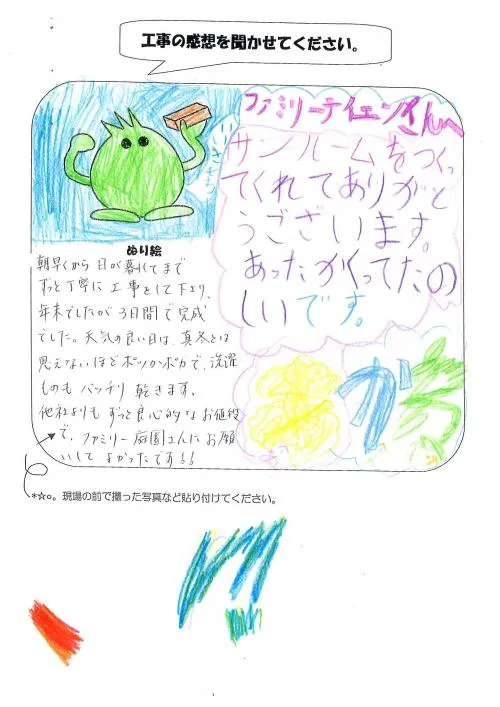 工事の感想を聞かせてください。
ファミリーテイエンさんへ
サンルームをつくっ
てくれてありがと
うございます。
あったかくってたの
しいです。
ぬり絵
朝早くから日が暮れてまで
ずっと丁寧に工事をして下より、
年末でしたが3日間で完成
でした。天気の良い日は、真冬とは
思えないほどポッカポカで、洗濯
ものもバッチリ乾きます。
他社よりもずっと良心的なお値段
で、ファミリー庭園さんにお願
いしてよかったです!!
*☆。現場の前で撮った写真など貼り付けてください。